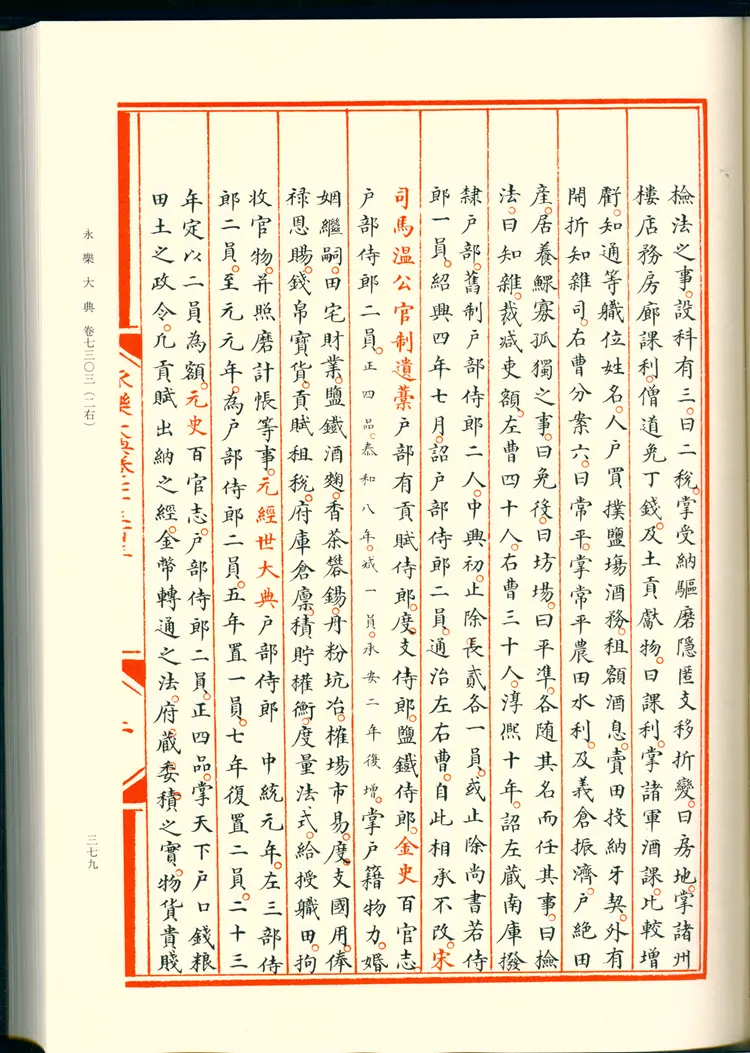 檢法之事。設科有三。曰二稅。掌受納驅磨隱匿支移折變。曰房地。掌諸州
樓店務房廊課利。僧道免丁錢。及土貢獻物。曰課利。掌諸軍酒課。比較增
虧。知通等職位姓名。人戶買撲鹽塲酒務。租額酒息。賣田投納牙契。外有
開折知雜司。右曹分案六。曰常平。掌常平農田水利。及義倉振濟。戶絕田
産。居養鰥寡孤獨之事。曰免役。曰坊場。曰平準。各隨其名而任其事。曰檢
法。曰知雜。裁減吏額。左曹四十人。右曹三十人。淳熙十年。詔左藏南庫撥
隸戶部。舊制戶部侍郎二人。中興初。止除長貳各一員。或止除尚書若侍
郎一員。紹興四年七月。詔戶部侍郎二員。通治左右曹。自此相承不改。宋
司馬溫公官制遺藁戶部有貢賦侍郎。度支侍郎。鹽鐵侍郎。金史百官志
戶部侍郎二員。正四品。泰和八年。減一員。承安二年復增。掌戶籍物力。婚
姻繼嗣。田宅財業。鹽鐵酒麴。香茶礬錫。丹粉坑冶。榷場市易。度支國用。俸
祿恩賜。錢帛寶貨。貢賦租稅。府庫倉廩。積貯權衡。度量法式。給授職田。拘
收官物。并照磨計帳等事。元經世大典戶部侍郎 中統元年。左三部侍
郎二員。至元元年。為戶部侍郎二員。五年置一員。七年復置二員。二十三
年定以二員為額。元史百官志。戶部侍郎二員。正四品。掌天下戶口錢粮
田土之政令。凡貢賦出納之經。金幣轉通之法。府藏委積之實。物貨貴賤
永樂大典 卷七三〇三(二右)
三七九